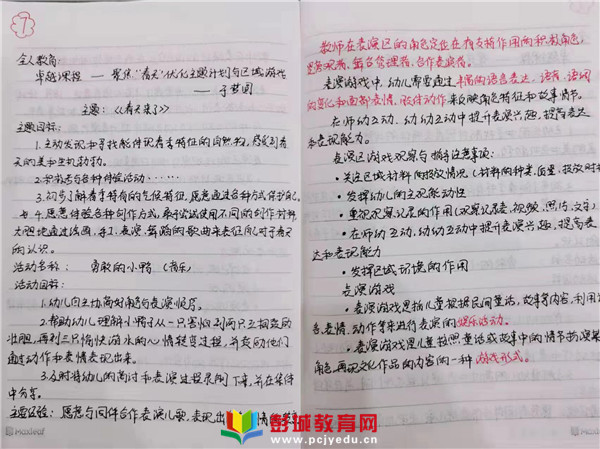 7
全人教育
卓越课程 — 聚焦"春天"优化主题计划与区域游戏
— 于梦圆
主题：《春天来了》
主题目标：
1.主动发现和寻找能体现春季特征的自然物，感受到春
天的美和生机勃勃。
2.积极参与各种体验活动……
3.初步了解春季特有的气候特征，愿意通过各种方式保护自己。
4.愿意体验各种创作方式，乐于尝试使用不同的创作材料
大胆地通过绘画、手工、表演、舞蹈的歌曲来表征自己对于春天
的认识。
活动名称： 勇敢的小鸭 （音乐）
活动目标：
1.幼儿自主协商好角色与表演顺序。
2.帮助幼儿理解小鸭子从一只害怕到两只互相鼓励
壮胆，再到三只愉快游水的心情转变过程，并鼓励他们
通过动作和表情表现出来。
3.及时将幼儿的商讨和表演过程录制下来，并在集体
中分享。
主要经验：愿意与同伴合作表演儿歌，表现出
教师在表演区的角色定位在有支持作用的积极角色，
舞台管理者、合作表演者。
表演游戏中，幼儿需要通过丰富的语言表达、语音、语调
的变化和面部表情、肢体动作来反映角色特征和故事情节。
在师幼互动、幼幼互动中提升表演兴趣，提高表达
和表现能力。
表演区游戏观察与指导注意事项：
•关注区域材料的投放情况（材料的种类、数量、投放时
•发挥幼儿的主观能动性
•重视观察记录的作用（观察记录表、视频、照片、文字）
•在师幼互动、幼幼互动中提升表演兴趣，提高表
达和表现能力
•发挥区域环境的作用
表演游戏
•表演游戏是指儿童根据民间童话、故事等内容，利用语
言、表情、动作等来进行表演的娱乐活动。
•表演游戏是儿童按照童话或故事中的情节扮演某
角色，再现文化作品的内容的一种游戏形式。
Maxleaf
Maxleaf
彭城教育网
www.pcjyedu.cn